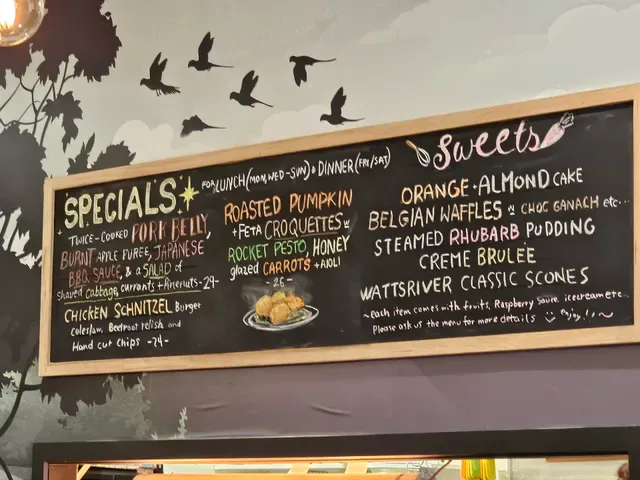 SPECIALS
FOR LUNCH (MON, WED-SUN) & DINNER (FRI/SAT)
TWICE-COOKED PORK BELLY,
BURNT APPLE PUREE, JAPANESE
BBQ SAUCE, & a SALAD of
shaved cabbage, currants + -29-
CHICKEN SCHNITZEL Burger
coleslaw, Beetroot relish and
Hand cut chips -24-
ROASTED PUMPKIN
+ FETA CROQUETTES w
ROCKET PESTO, HONEY
glazed CARROTS + AIOLI
-26-
Sweets
ORANGE + ALMOND CAKE
BELGIAN WAFFLES w CHOC GANACH etc...
STEAMED RHUBARB PUDDING
CREME BRULEE
WATTSRIVER CLASSIC SCONES
~ each item comes with fruits, Raspberry Sauce, icecream etc...
Please ask us the menu for more details enjoy!!~